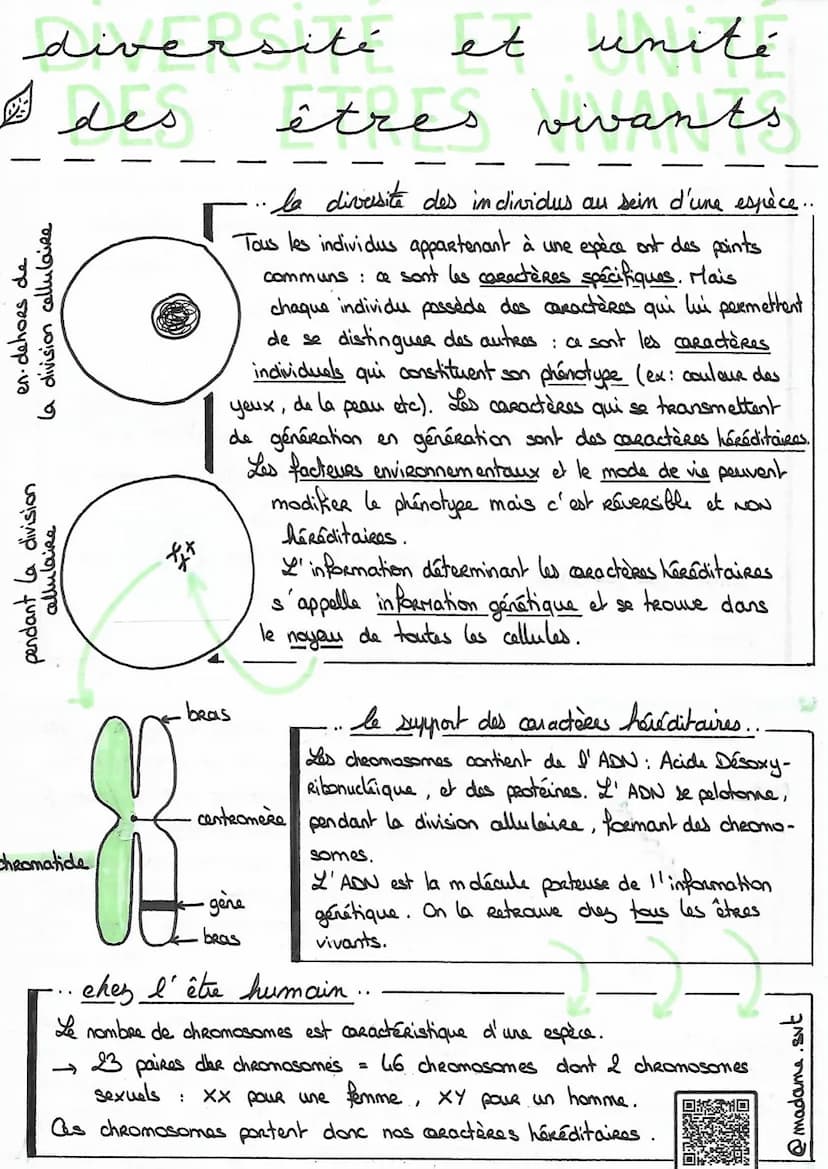 diversité et unité
des êtres vivants
DIVERSITÉ ET UNITÉ
DES ÊTRES VIVANTS
en-dehors de
la division cellulaire
pendant la division
cellulaire
.. la diversité des individus au sein d'une espèce ..
Tous les individus appartenant à une espèce ont des points
communs : ce sont les caractères spécifiques. Mais
chaque individu possède des caractères qui lui permettent
de se distinguer des autres : ce sont les caractères
individuels qui constituent son phénotype (ex : couleur des
yeux, de la peau etc). Les caractères qui se transmettent
de génération en génération sont des caractères héréditaires.
Les facteurs environnementaux et le mode de vie peuvent
modifier le phénotype mais c'est réversible et NON
héréditaires.
L'information déterminant les caractères héréditaires
s'appelle information génétique et se trouve dans
le noyau de toutes les cellules.
bras
centromère
chromatide
gène
bras
.. le support des caractères héréditaires ..
Les chromosomes contient de l'ADN : Acide Désoxy-
Ribonucléique, et des protéines. L'ADN se pelotonne,
pendant la division cellulaire, formant des chromo-
somes.
L'ADN est la molécule porteuse de l'information
génétique. On la retrouve chez tous les êtres
vivants.
.. chez l'être humain ..
Le nombre de chromosomes est caractéristique d'une espèce.
→ 23 paires de chromosomes = 46 chromosomes dont 2 chromosones
sexuels : XX pour une femme, XY pour un homme.
Ces chromosomes portent donc nos caractères héréditaires.
@madame.svt